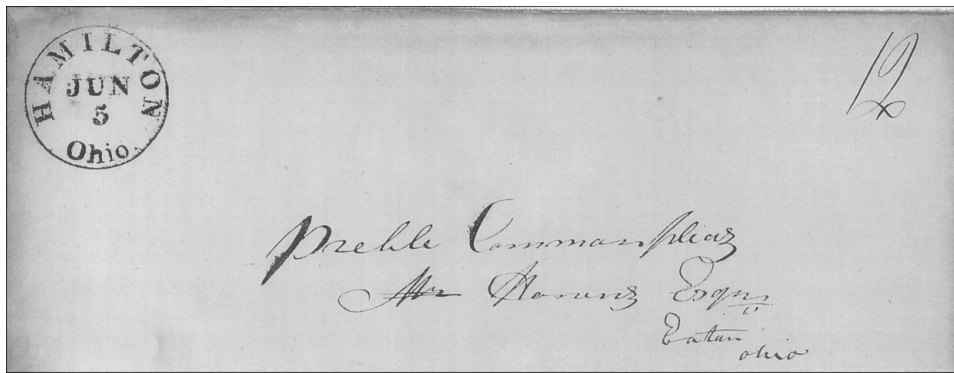 HAMILTON
JUN
5
Ohio
12
Preble Common pleas
Esqr
Eaton
ohio